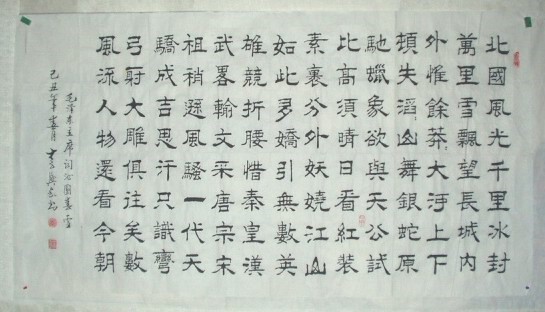 北國風光千里冰封
萬里雪飄望長城內
外惟餘莽〻大河上下
頓失滔〻山舞銀蛇原
馳蠟象欲與天公試
比高須晴日看紅裝
素裹分外妖嬈江山
如此多嬌引無數英
雄競折腰惜秦皇漢
武畧輸文采唐宗宋
祖稍遜風騷一代天
驕成吉思汗只識彎
弓射大雕俱往矣數
風流人物還看今朝
毛澤東主席詞沁園春雪
己丑年春月